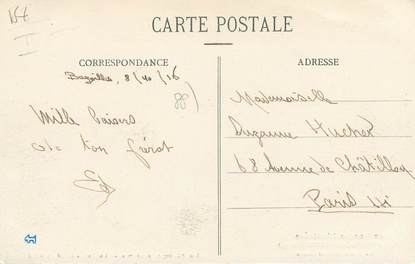 CARTE POSTALE
CORRESPONDANCE
Bazoilles, 8/10/16
Mille baisers
de ton férot
ADRESSE
Mademoiselle
Suzanne Hucher
68 Avenue de Châtillon
Paris 14